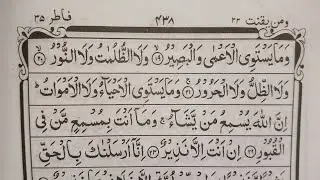 ومن يقنت ٢٢ ٤٣٨ فاطر ٣٥
وَمَا يَسْتَوِى الْاَعْمٰى وَالْبَصِيْرُ ۙ﴿۱۹﴾ وَلَا الظُّلُمٰتُ وَلَا النُّوْرُ ۙ﴿۲۰﴾
وَلَا الظِّلُّ وَلَا الْحَرُوْرُ ۚ﴿۲۱﴾ وَمَا يَسْتَوِى الْاَحْيَآءُ وَلَا الْاَمْوَاتُ ؕ
اِنَّ اللّٰهَ يُسْمِعُ مَنْ يَّشَآءُ ۚ وَمَاۤ اَنْتَ بِمُسْمِعٍ مَّنْ فِى
الْقُبُوْرِ ﴿۲۲﴾ اِنْ اَنْتَ اِلَّا نَذِيْرٌ ﴿۲۳﴾ اِنَّاۤ اَرْسَلْنٰكَ بِالْحَقِّ